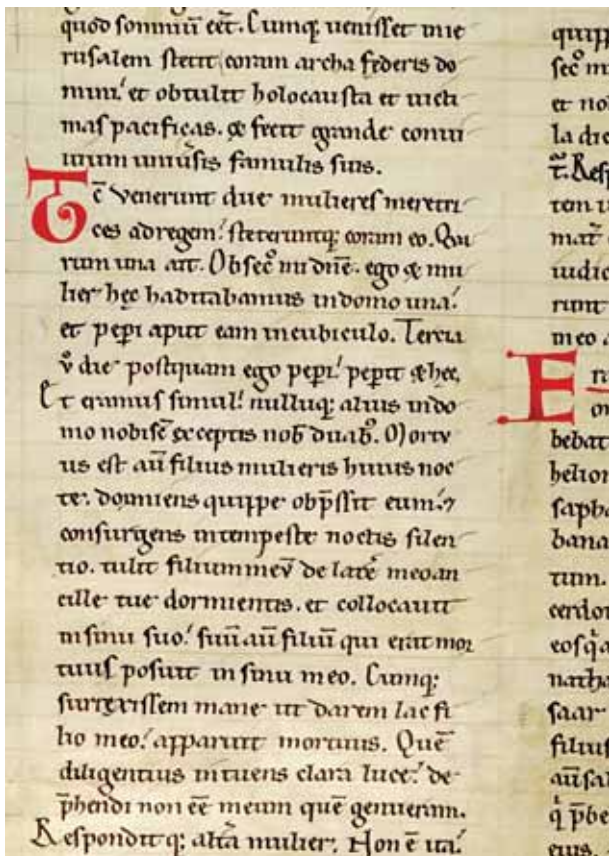 quod somniū eēt. Cumq; uenisset inie
rusalem stetit coram archa federis do
mini. et obtulit holocausta et uicti
mas pacificas. & fecit grande conui
uium uniusis famulis suis.
Tc̄ venerunt due mulieres meretri
ces ad regem. steteruntq; coram eo. Qua
rum una ait. Obsec̉ mi dn̄e. ego & mu
lier hęc habitabamus in domo una.
et pep̱i aput eam in cubiculo. Tercia
v̊ die postquam ego pep̱i. pep̱it & hęc.
Et eramus simul. nullusq; alius in do
mo nobisc̄ exceptis nob̄ duab̉. Mortu
us est aū filius mulieris huius noc
te. dormiens quippe obp̄ssit eum. ⁊
consurgens intempeste noctis silen
tio. tulit filium meū de late meo an
cille tue dormientis. et collocauit
in sinu suo. suū aū filiū qui erat mor
tuus posuit in sinu meo. Cumq;
surrexissem mane ut darem lac fi
lio meo. apparuit mortuus. Quē
diligentius intuens clara luce. de
p̄hendi non eē meum quē genueram.
Responditq; alt̄a mulier. Non ē ita.
quipp
sec̉ m
et no
la die
t̄. Resp
tem u
mat̉
iudic
runt
meo a
Era
on
bebat
helion
sapha
bana
tum.
cerdo
eos q̇ a
natha
saar
filius
aū sal
q̇ p̄be
eius.